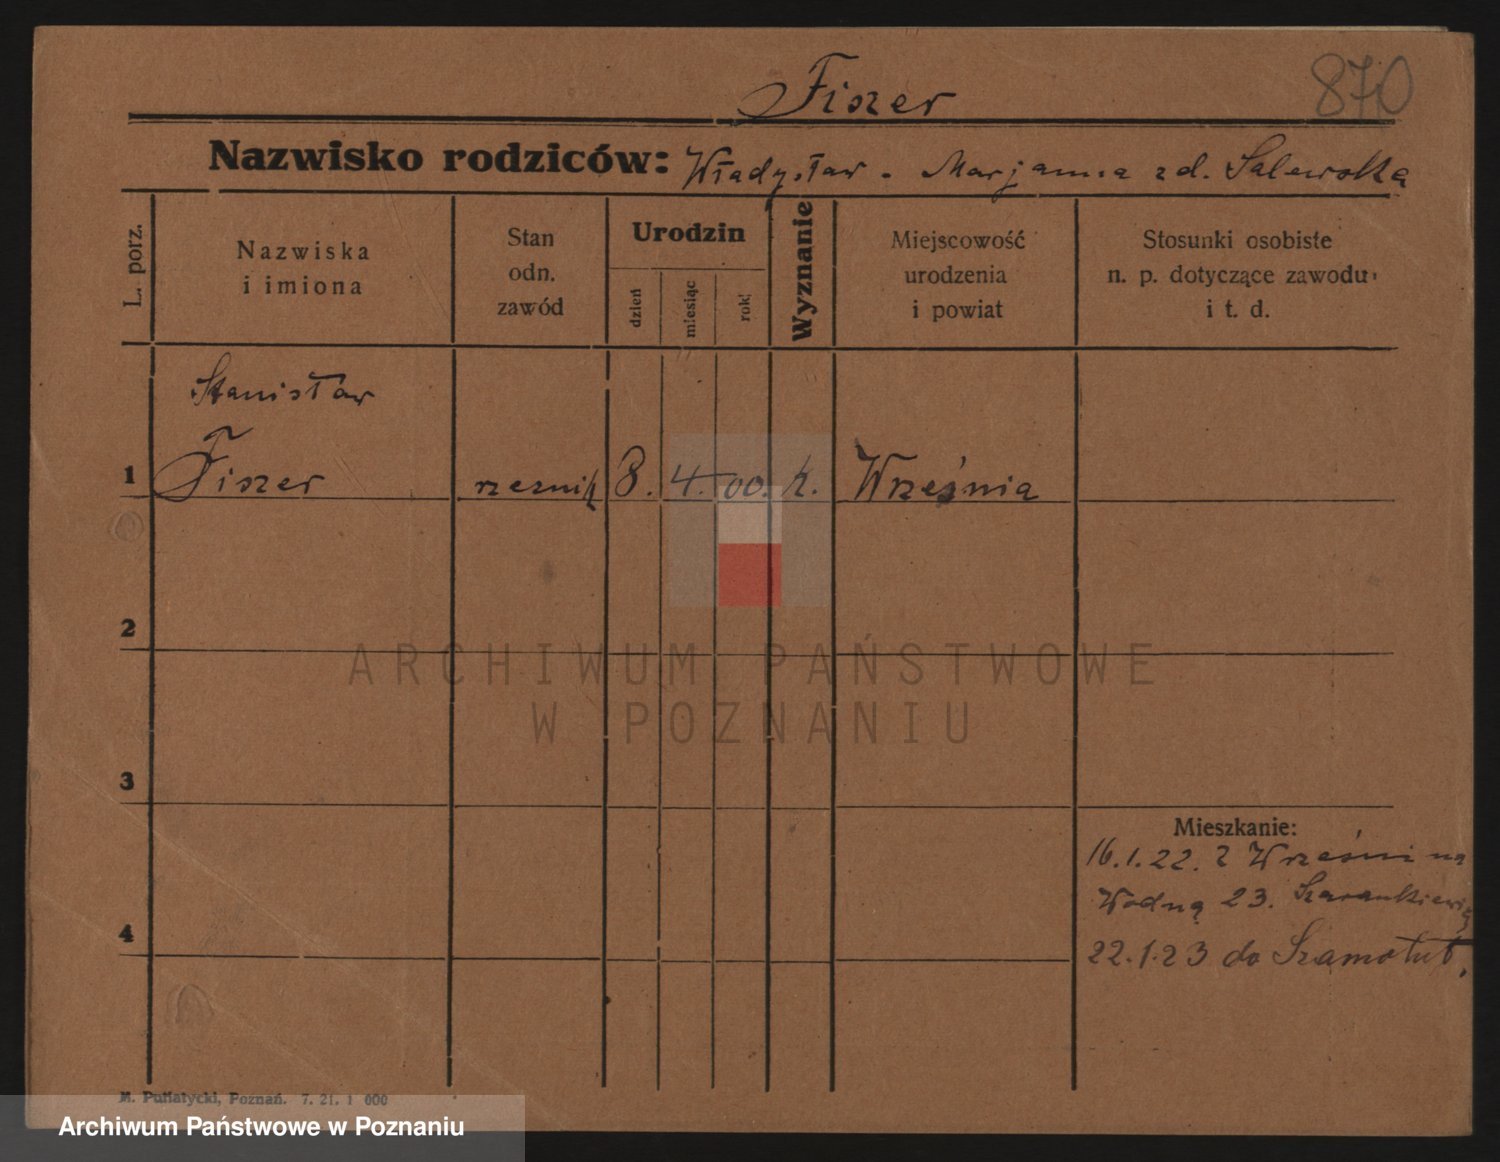 Fiszer
870
Nazwisko rodziców: Władysław - Marjanna zd. Salewska
L. porz.
Nazwiska
i imiona
Stan
odn.
zawód
Urodzin
dzień
miesiąc
rok
Wyznanie
Miejscowość
urodzenia
i powiat
Stosunki osobiste
n. p. dotyczące zawodu
i t. d.
Stanisław
1 Fiszer rzeznik 8. 4. 00. k. Września
2
ARCHIWUM PAŃSTWOWE
W POZNANIU
3
Mieszkanie:
16.1.22. z Wrześni na
Wodną 23.
4
22.1.23 do Szamotuł.
M. Putiatycki, Poznań. 7. 21. 1 000
Archiwum Państwowe w Poznaniu